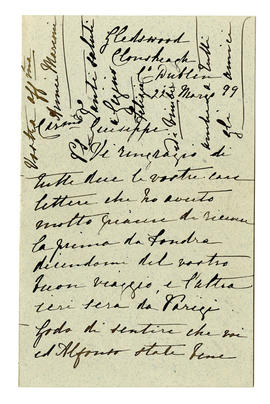 Gledswood
Clonskeagh
Dublin
22 Marzo 99
Giuseppe
Vi ringrazio di
tutte due le vostre care
lettere che ho avuto
molto piacere di ricevere
la prima da Londra
dicendomi del vostro
buon viaggio, e l'altra
ieri sera da Parigi
Godo di sentire che voi
ed Alfonso state bene
Vostra aff ma
Annie Marconi
tanti saluti
anche a tutti
gli amici